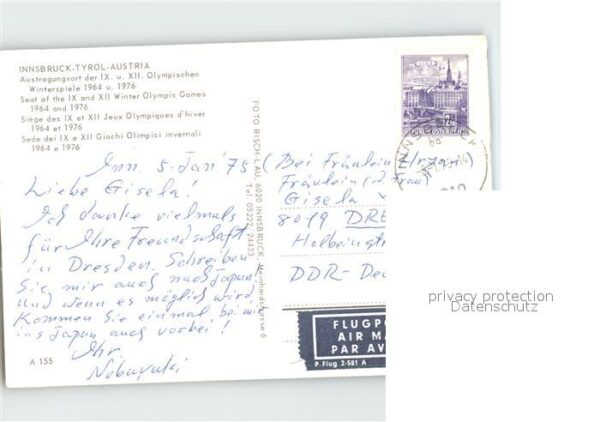 INNSBRUCK-TYROL-AUSTRIA
Austragungsort der IX. u. XII. Olympischen
Winterspiele 1964 u. 1976
Seat of the IX and XII Winter Olympic Games
1964 and 1976
Siège des IX et XII Jeux Olympiques d'hiver
1964 et 1976
Sede dei IX e XII Giochi Olimpici invernali
1964 e 1976
Inn. 5. Jan '75
Liebe Gisela!
Ich danke vielmals
für Ihre Freundschaft
in Dresden. Schreiben
Sie mir auch nach Japan,
und wenn es möglich wird,
Kommen Sie einmal bei mir
ins Japan auch vorbei!
Ihr,
Nobuyuki
A 155
FOTO RISCH-LAU, 6020 INNSBRUCK,
Tel. 05222-24433
LINZ
(Bei Fräulein
Fräulein
Gisela
8019 DRE
Holbeinstr
DDR-Deu
FLUGPO
AIR MA
PAR AV
P. Flug 2-581 A
privacy protection
Datenschutz